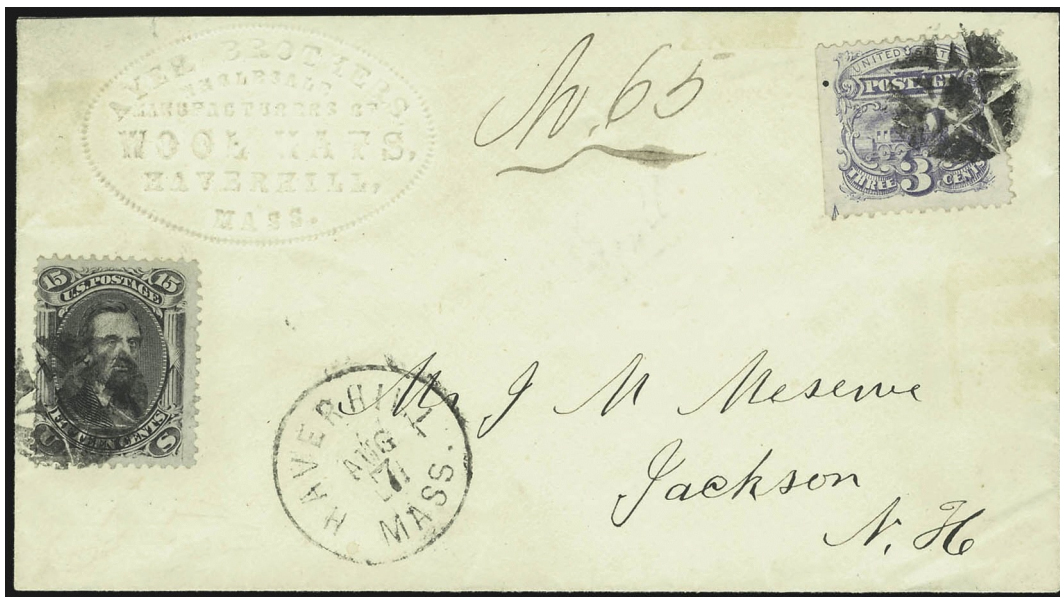 AYER BROTHERS
WHOLESALE
MANUFACTURERS OF
WOOL HATS,
HAVERHILL,
MASS.
No. 65
UNITED STATES
POSTAGE
THREE 3 CENTS
15 15
U.S. POSTAGE
FIFTEEN CENTS
U S
HAVERHILL
AUG
71
MASS.
Mr J M Meserve
Jackson
N. H